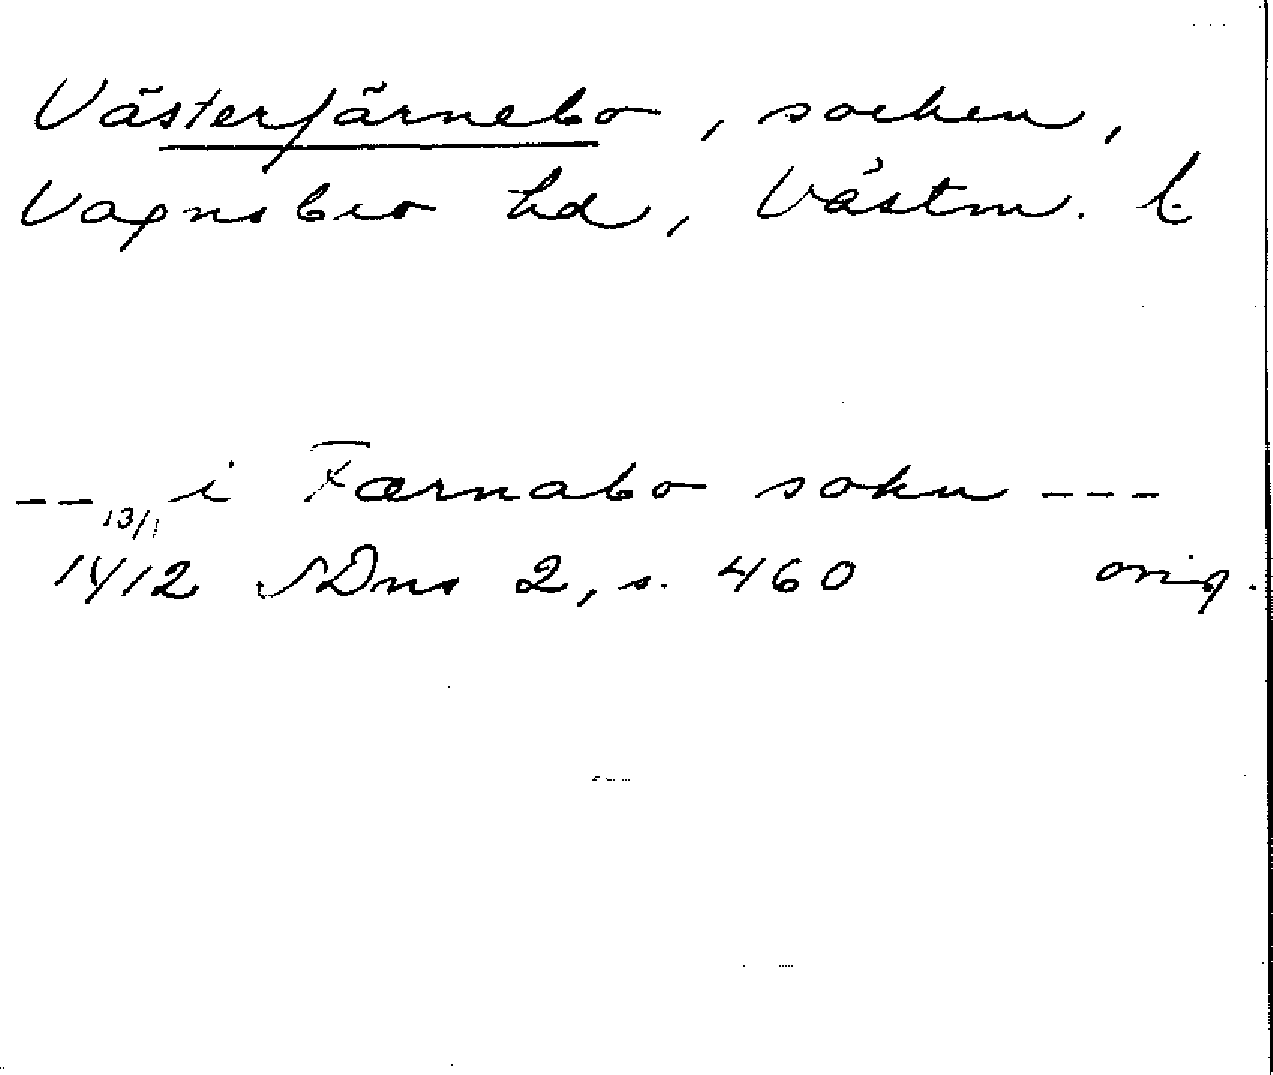 Västerfärnebo, socken,
Vagnsbro hd, Västm. l.
--- i Færnabo sokn ---
13/1
1412 SDns 2, s. 460 orig.